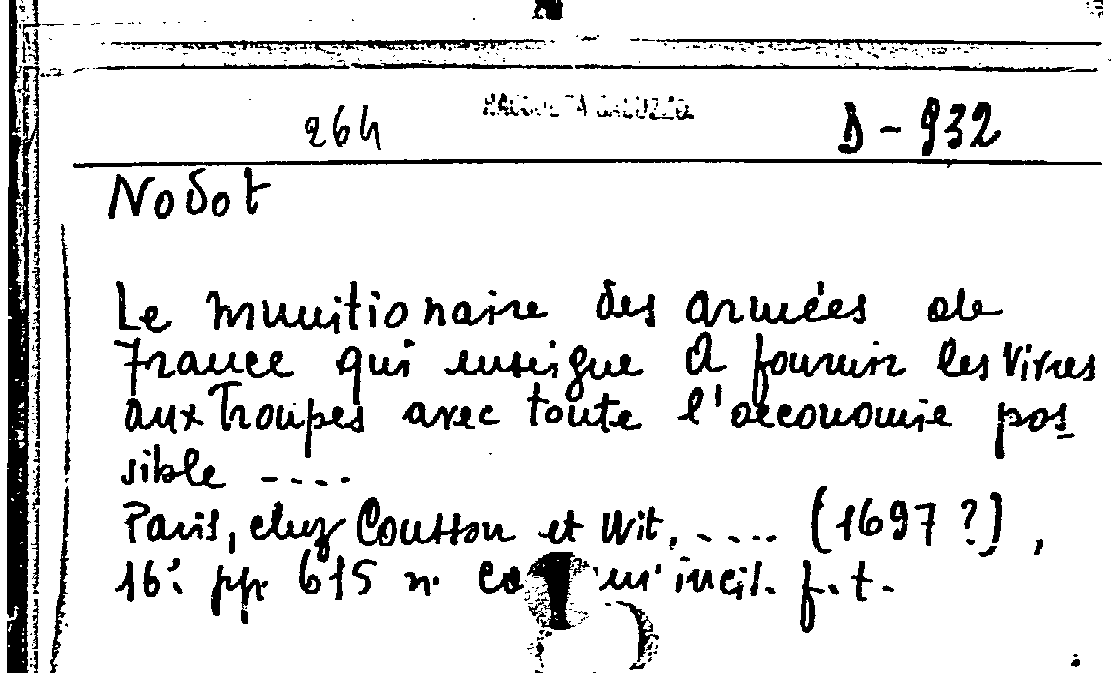 264 RACCOLTA GALUZZO D-932
Nodot
Le munitionaire des armées de
France qui enseigne a fournir les Vivres
aux Troupes avec toute l'oeconomie pos
sible ....
Paris, chez Cousson et Wit, .... (1697 ?) ,
16° pp. 615 n. incis. f.t.